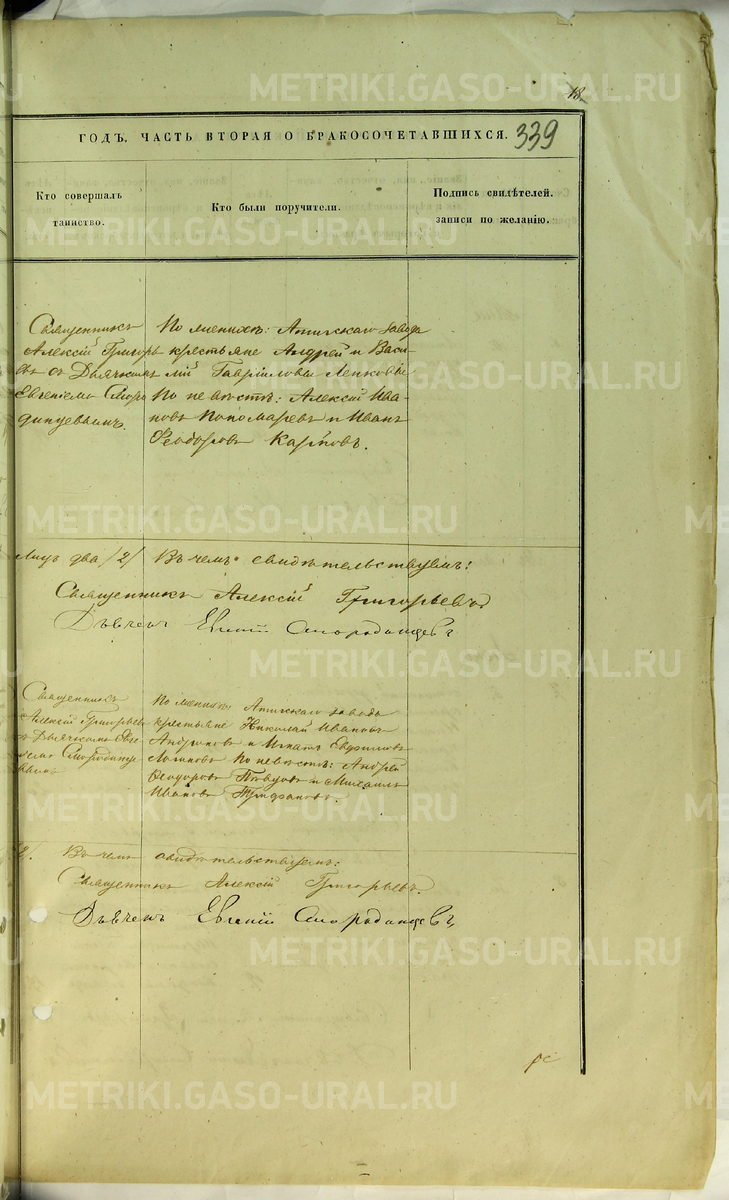 METRIKI.GASO-URAL.RU
18
ГОДЪ. ЧАСТЬ ВТОРАЯ О БРАКОСОЧЕТАВШИХСЯ.
339
Кто совершалъ
таинство.
Кто были поручители.
Подпись свидѣтелей.
записи по желанію.
Священникъ
Алексій Григорь
евъ съ Дьячкомъ
Евгеніемъ Сморо
динцевымъ.
По женихѣ: Атигскаго завода
крестьяне Андрей и Васи-
лій Гавріиловы
По невѣстѣ: Алексій Ива-
новъ Пономаревъ и Иванъ
Феодоровъ Карповъ.
Лицъ два /2/ Въ чемъ свидѣтельствуемъ:
Священникъ Алексій Григорьевъ
Дьячекъ Евгеній Смородинцевъ
Священникъ
Алексій Григорьевъ
съ Дьячкомъ Евге
ніемъ Смородинце
вымъ
По женихѣ: Атигскаго завода
крестьяне Николай Ивановъ
и Игнатъ
По невѣстѣ: Андрей
Феодоровъ и Михаилъ
Ивановъ
2/. Въ чемъ свидѣтельствуемъ:
Священникъ Алексій Григорьевъ.
Дьячекъ Евгеній Смородинцевъ